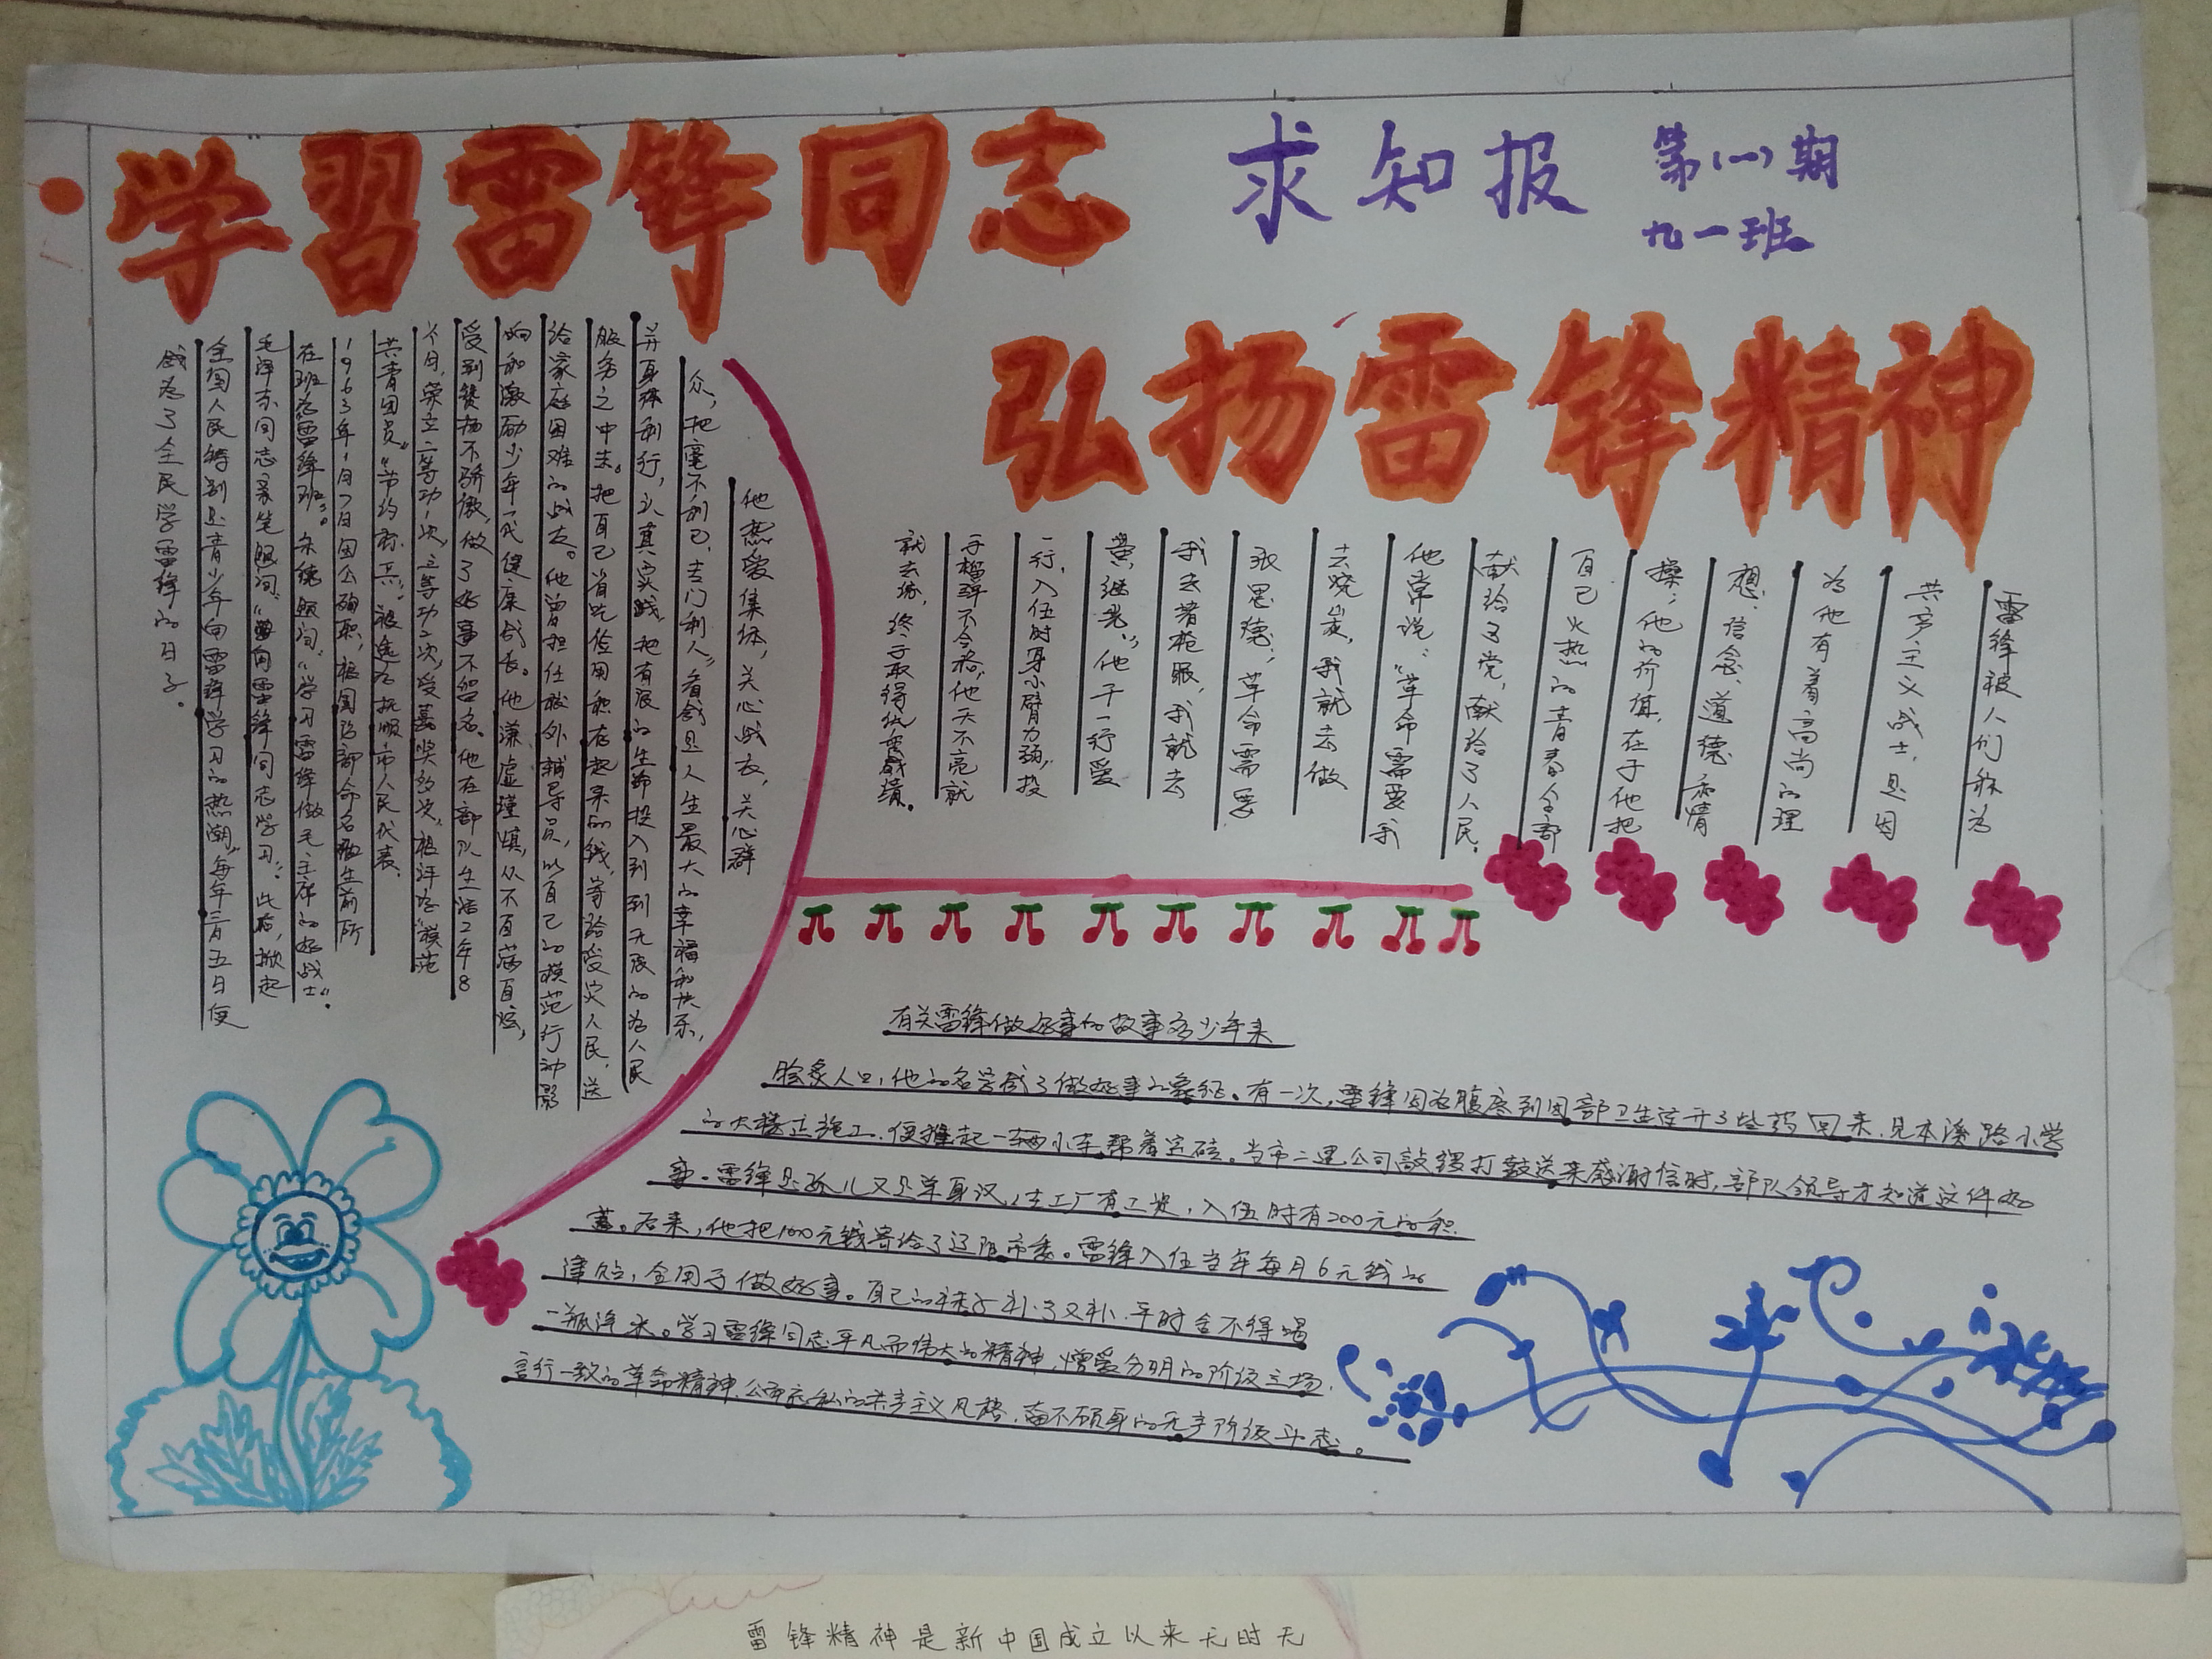 学習雷锋同志
求知报
第(一)期
九一班
弘扬雷锋精神
雷锋被人们称为
共产主义战士,是因
为他有着高尚的理
想、信念、道德和情
操;他的价值,在于他把
自己火热的青春全部
献给了党,献给了人民.
他常说:“革命需要我
去烧炭,我就去做
张思德;革命需要
我去堵枪眼,我就去
黄继光”,他干一行爱
一行,入伍时身小臂力弱,投
手榴弹不合格,他天不亮就
就去练,终于取得优秀成绩。
他热爱集体,关心战友,关心群
众,把“毫不利己,专门利人”看成是人生最大的幸福和快乐,
并身体利行,认真实践,把有限的生命投入到到无限的为人民
服务之中去。把自己省吃俭用积存起来的钱,寄给受灾人民,送
给家庭困难的战友。他曾担任校外辅导员,以自己的模范行动影
响和激励少年一代健康成长。他谦虚谨慎,从不自满自炫,
受到赞扬不骄傲,做了好事不留名。他在部队生活2年8
个月,荣立二等功一次,三等功二次,受嘉奖多次,被评为“模范
共青团员”“节约标兵”,被选为抚顺市人民代表.
1963年1月7日国防部命名他生前所
在班为“雷锋班”。朱德题词:“学习雷锋做毛主席的好战士”.
毛泽东同志亲笔题词:“向雷锋同志学习”.此后,掀起
全国人民特别是青少年向雷锋学习的热潮,每年三月五日便
成为了全民学雷锋的日子.
有关雷锋做好事的故事多少年来
脍炙人口,他的名字成了做好事的象征。有一次,雷锋因为腹疼到团部卫生连开了些药回来,见本溪路小学
的大楼正施工,便推起一辆小车帮着运砖。当市二建公司敲锣打鼓送来感谢信时,部队领导才知道这件好
事.雷锋是孤儿又是单身汉,在工厂有工资,入伍时有200元的积
蓄。后来,他把100元钱寄给了辽阳市委。雷锋入伍当年每月6元钱的
津贴,全用于做好事。自己的袜子补了又补,平时舍不得喝
一瓶汽水。学习雷锋同志平凡而伟大的精神,憎爱分明的阶级立场,
言行一致的革命精神,公而忘私的共产主义风格,奋不顾身的无产阶级斗志。
雷锋精神是新中国成立以来无时无